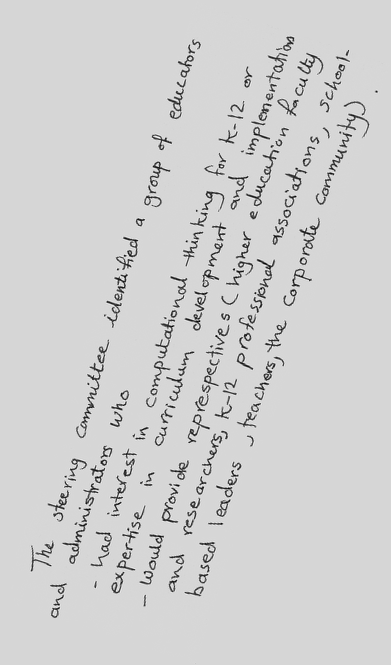 The steering committee identified a group of educators
and administrators who
- had interest in computational thinking for K-12 or
expertise in curriculum development and implementation
- Would provide represpectives (higher education faculty
and researchers, K-12 professional associations, school-
based leaders, teachers, the corporate community).